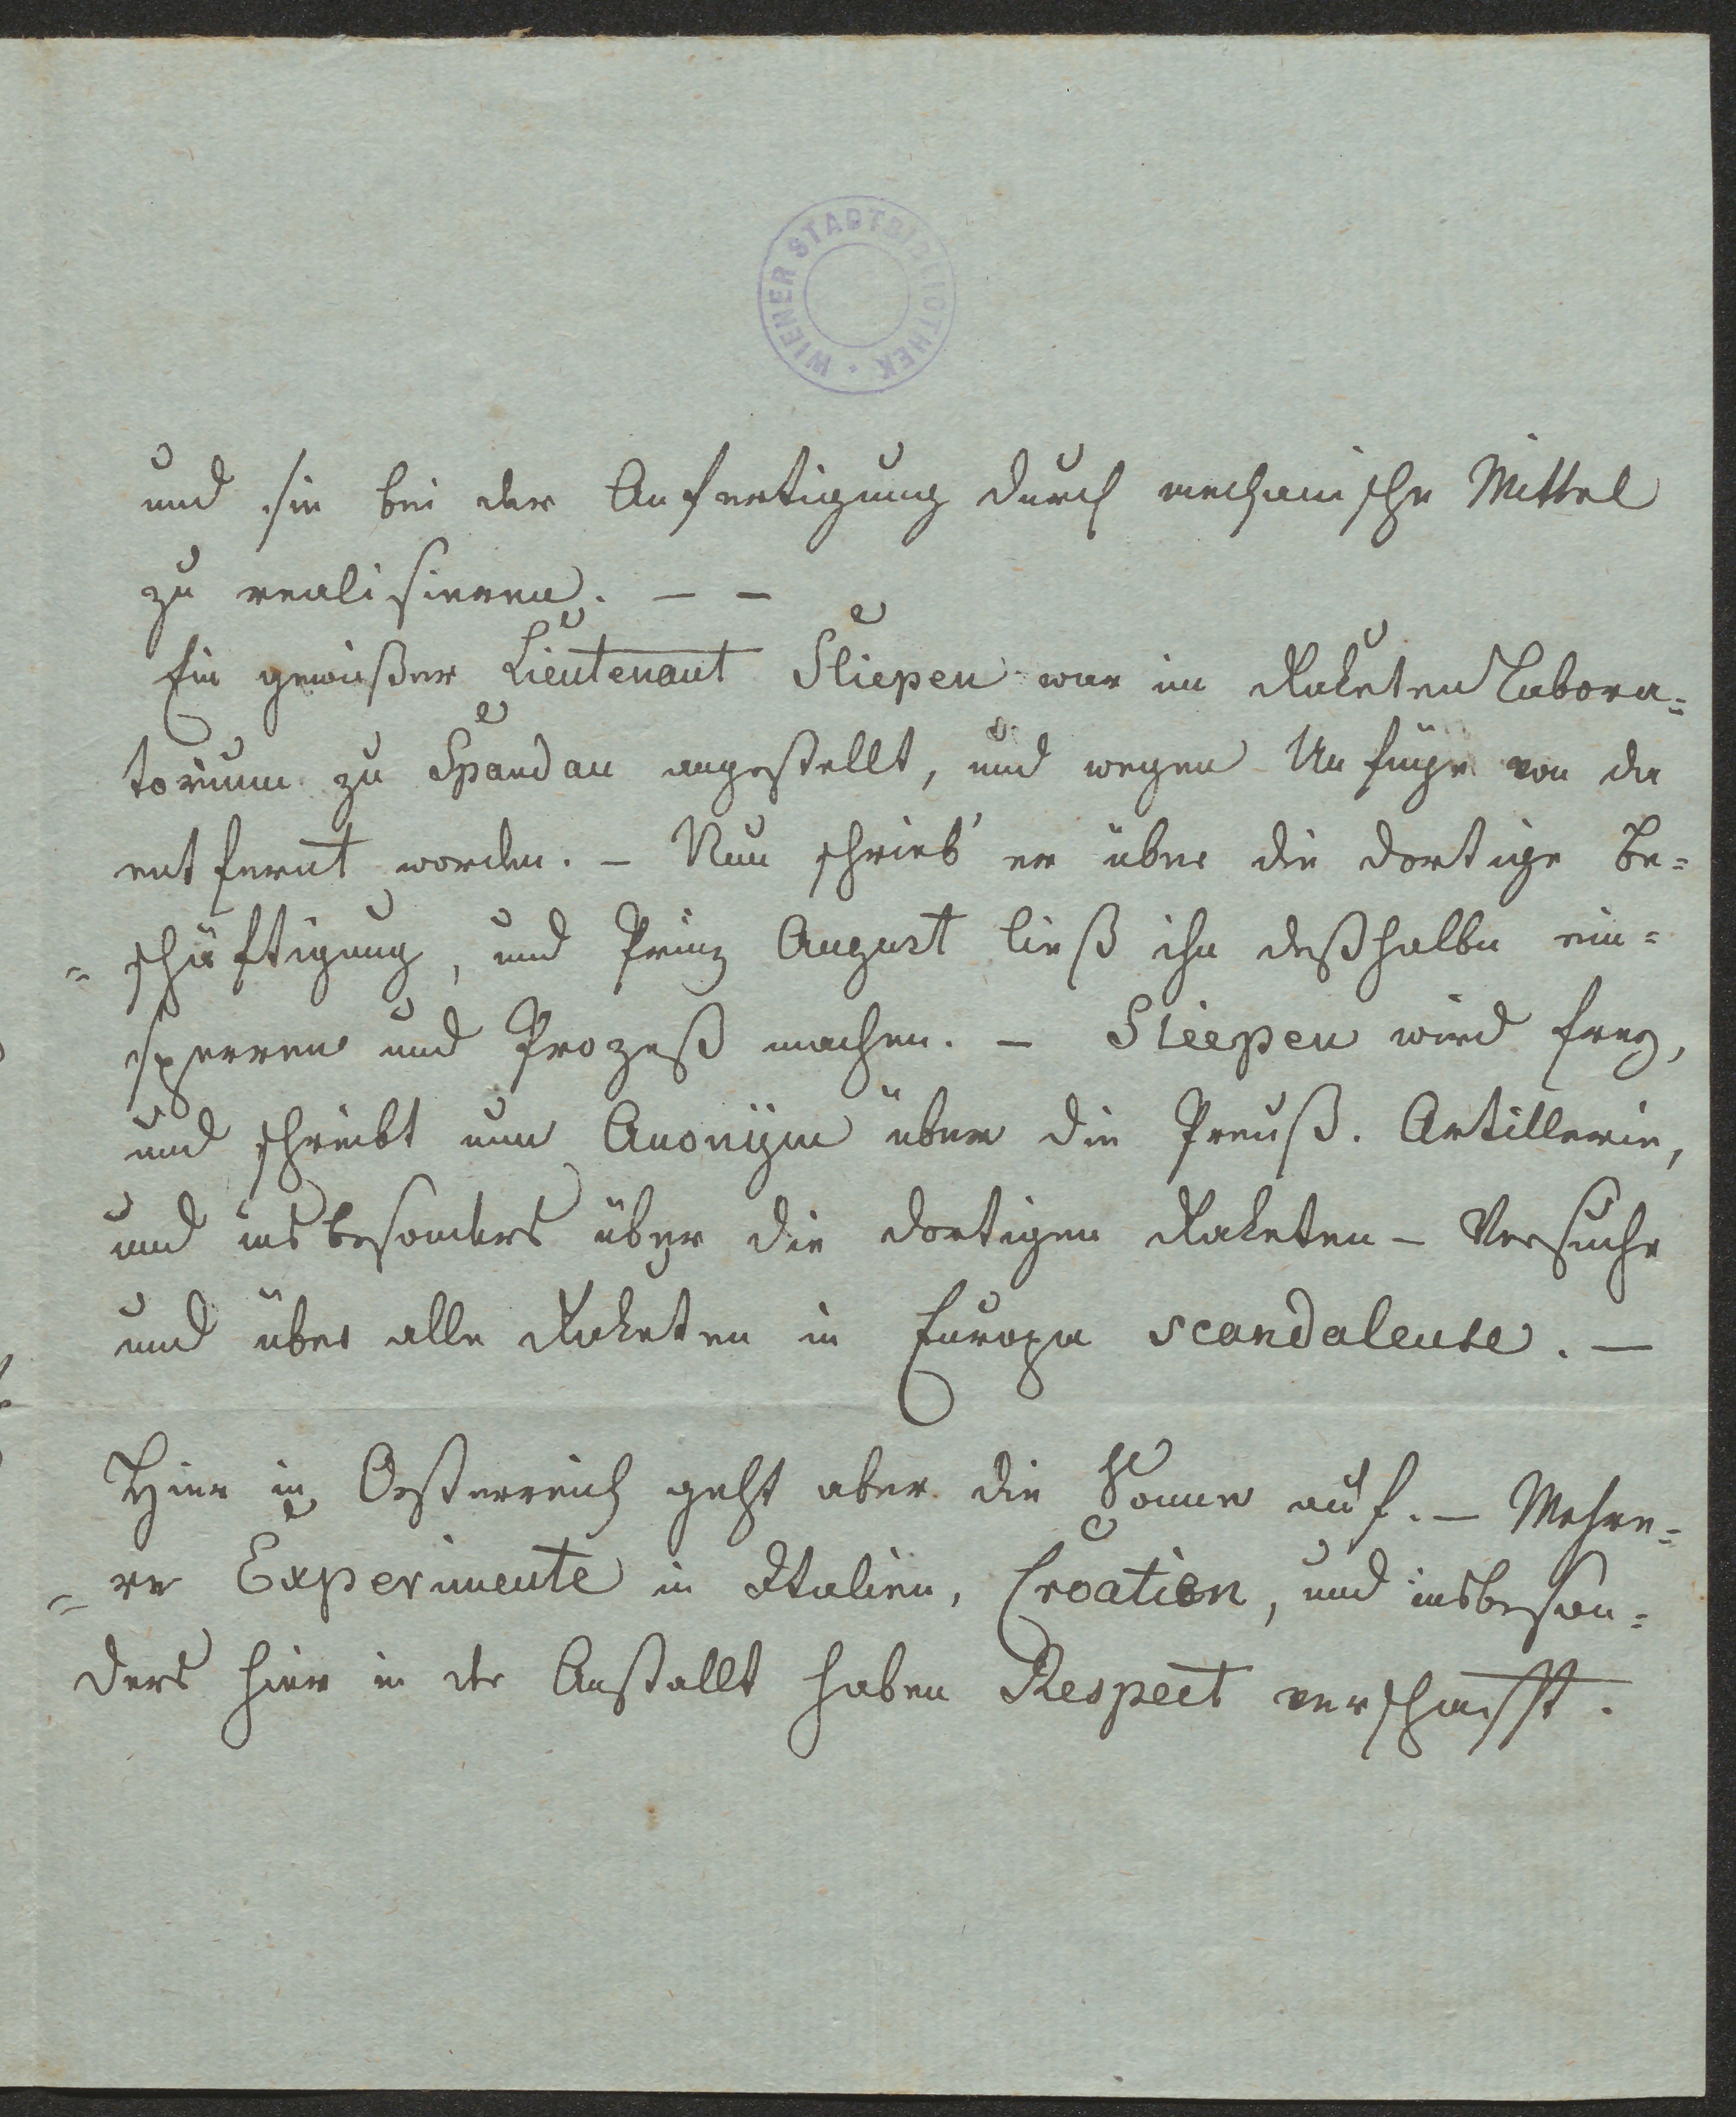 WIENER STADTBIBLIOTHEK
und sie bei der Anfertigung durch mechanische Mittel
zu realisieren. — —
Ein gewißer Lieutenant Sliepen war im Raketen Labora=
torium zu Spandau angestellt, und wegen Unfüge von da
entfernt worden. — Nun schrieb er über die dortige Be=
=schäftigung, und Prinz August ließ ihn deßhalben ein=
sperren und Prozeß machen. — Sliepen wird frey,
und schreibt nun Anonÿm über die Preuß. Artillerie,
und insbesonders über die dortigen Raketen – Versuche
und über alle Raketen in Europa scandaleuse. —
Hier in Oesterreich geht aber die Sonne auf. — Mehre=
=re Experimente in Italien, Croatien, und insbeson=
ders hier in der Anstallt haben Respect verschafft.